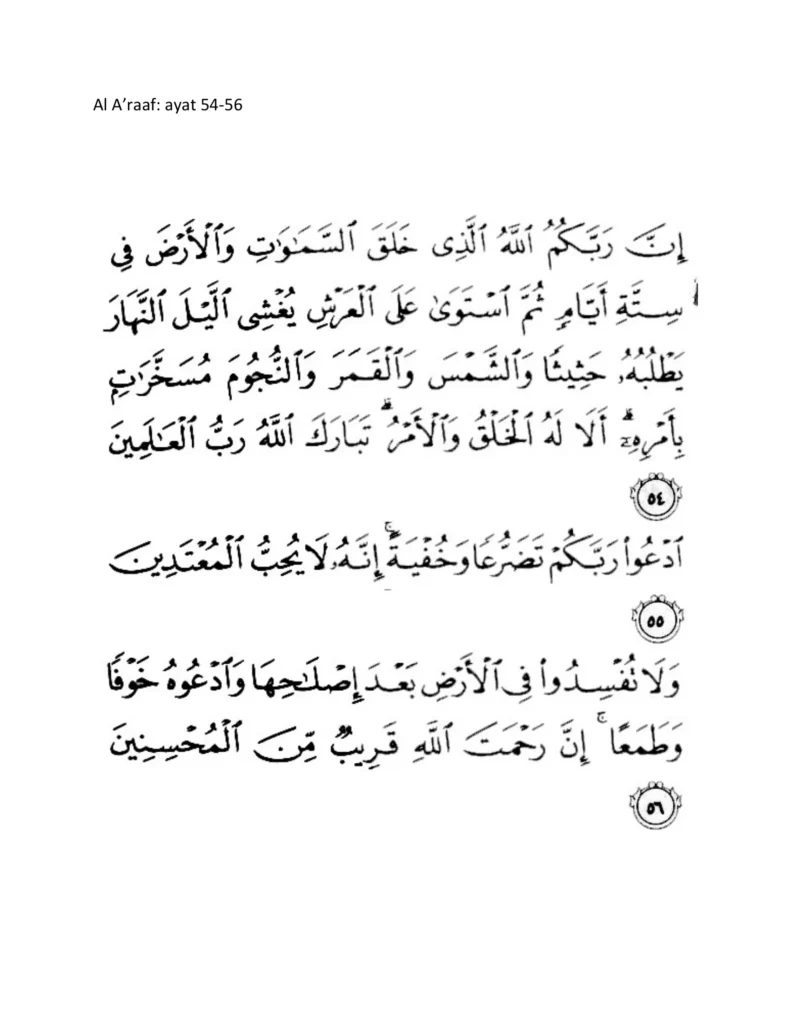 Al A’raaf: ayat 54-56
إِنَّ رَبَّكُمُ ٱللَّهُ ٱلَّذِى خَلَقَ ٱلسَّمَٰوَٰتِ وَٱلْأَرْضَ فِى
سِتَّةِ أَيَّامٍ ثُمَّ ٱسْتَوَىٰ عَلَى ٱلْعَرْشِ يُغْشِى ٱلَّيْلَ ٱلنَّهَارَ
يَطْلُبُهُۥ حَثِيثًا وَٱلشَّمْسَ وَٱلْقَمَرَ وَٱلنُّجُومَ مُسَخَّرَٰتٍۭ
بِأَمْرِهِۦٓ ۗ أَلَا لَهُ ٱلْخَلْقُ وَٱلْأَمْرُ ۗ تَبَارَكَ ٱللَّهُ رَبُّ ٱلْعَٰلَمِينَ
٥٤
ٱدْعُوا۟ رَبَّكُمْ تَضَرُّعًا وَخُفْيَةً ۚ إِنَّهُۥ لَا يُحِبُّ ٱلْمُعْتَدِينَ
٥٥
وَلَا تُفْسِدُوا۟ فِى ٱلْأَرْضِ بَعْدَ إِصْلَٰحِهَا وَٱدْعُوهُ خَوْفًا
وَطَمَعًا ۚ إِنَّ رَحْمَتَ ٱللَّهِ قَرِيبٌ مِّنَ ٱلْمُحْسِنِينَ
٥٦